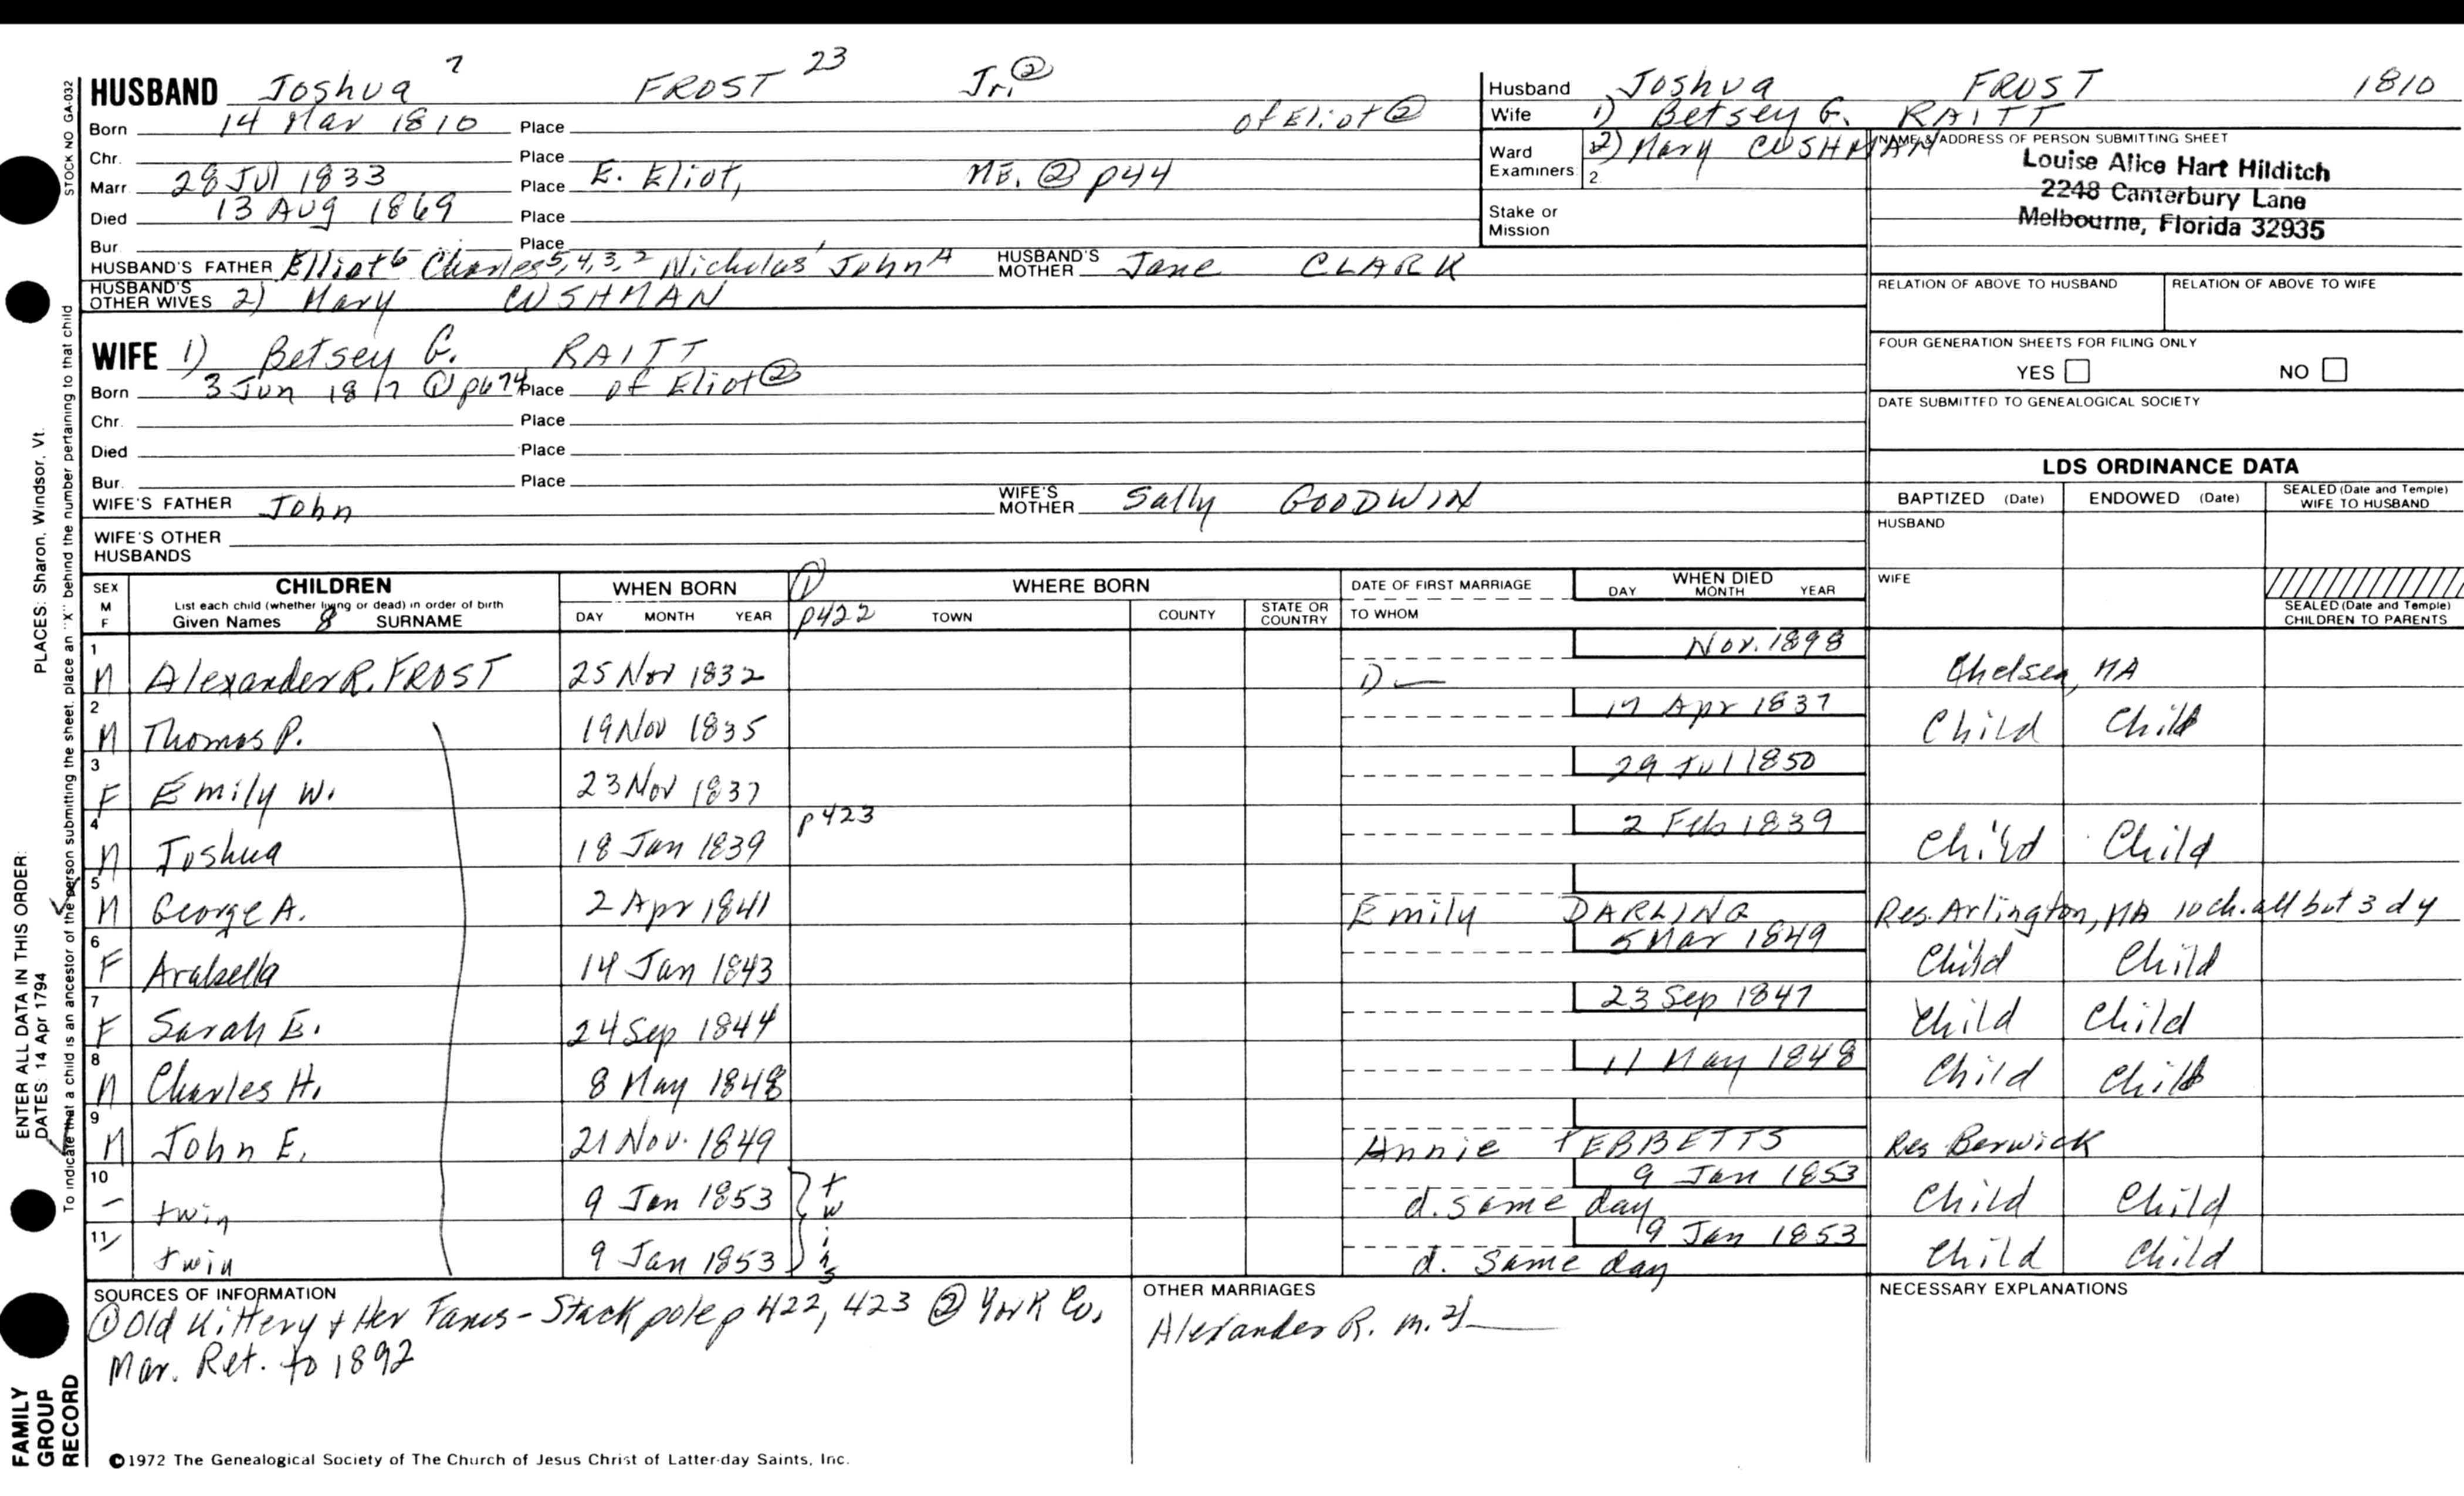 HUSBAND Joshua 7 FROST 23 Jr. ②
Born 14 Mar 1810 Place of Eliot ②
Chr. Place
Marr. 28 Jul 1833 Place E. Eliot, ME. ② p44
Died 13 Aug 1869 Place
Bur. Place
HUSBAND'S FATHER Elliot 6 Charles 5,4,3,2 Nicholas 1 John A HUSBAND'S MOTHER Jane CLARK
HUSBAND'S OTHER WIVES 2) Mary CUSHMAN
WIFE 1) Betsey G. RAITT
Born 3 Jun 1817 ① p674 Place of Eliot ②
Chr. Place
Died Place
Bur. Place
WIFE'S FATHER John WIFE'S MOTHER Sally GOODWIN
WIFE'S OTHER HUSBANDS
Husband Joshua FROST 1810
Wife 1) Betsey G. RAITT
Ward Examiners 2) Mary CUSHMAN
2
Stake or Mission
NAME & ADDRESS OF PERSON SUBMITTING SHEET
Louise Alice Hart Hilditch
2248 Canterbury Lane
Melbourne, Florida 32935
RELATION OF ABOVE TO HUSBAND RELATION OF ABOVE TO WIFE
FOUR GENERATION SHEETS FOR FILING ONLY
YES NO
DATE SUBMITTED TO GENEALOGICAL SOCIETY
LDS ORDINANCE DATA
BAPTIZED (Date) ENDOWED (Date) SEALED (Date and Temple) WIFE TO HUSBAND
HUSBAND
WIFE
SEALED (Date and Temple) CHILDREN TO PARENTS
SEX M F CHILDREN WHEN BORN ① WHERE BORN DATE OF FIRST MARRIAGE WHEN DIED
List each child (whether living or dead) in order of birth
Given Names 8 SURNAME DAY MONTH YEAR p422 TOWN COUNTY STATE OR COUNTRY TO WHOM DAY MONTH YEAR
1 M Alexander R. FROST 25 Nov 1832 1) — Nov. 1898 Chelsea, MA
2 M Thomas P. 19 Nov 1835 17 Apr 1837 Child Child
3 F Emily W. 23 Nov 1837 29 Jul 1850
4 M Joshua 18 Jan 1839 p423 2 Feb 1839 Child Child
5 M George A. 2 Apr 1841 Emily DARLING Res. Arlington, MA 10 ch. all but 3 d y
6 F Arabella 14 Jan 1843 5 Mar 1849 Child Child
7 F Sarah E. 24 Sep 1844 23 Sep 1847 Child Child
8 M Charles H. 8 May 1848 11 May 1848 Child Child
9 M John E. 21 Nov. 1849 Annie TEBBETTS Res Berwick
10 – twin 9 Jan 1853 twins d. same day 9 Jan 1853 Child Child
11 – twin 9 Jan 1853 d. same day 9 Jan 1853 Child Child
SOURCES OF INFORMATION
① Old Kittery & Her Fams - Stackpole p 422, 423 ② York Co.
Mar. Ret. to 1892
OTHER MARRIAGES
Alexander R. m. 2)
NECESSARY EXPLANATIONS
©1972 The Genealogical Society of The Church of Jesus Christ of Latter-day Saints, Inc.
STOCK NO GA-032
PLACES: Sharon, Windsor, Vt.
To indicate that a child is an ancestor of the person submitting the sheet, place an "X" behind the number pertaining to that child
ENTER ALL DATA IN THIS ORDER:
DATES: 14 Apr 1794
FAMILY
GROUP
RECORD